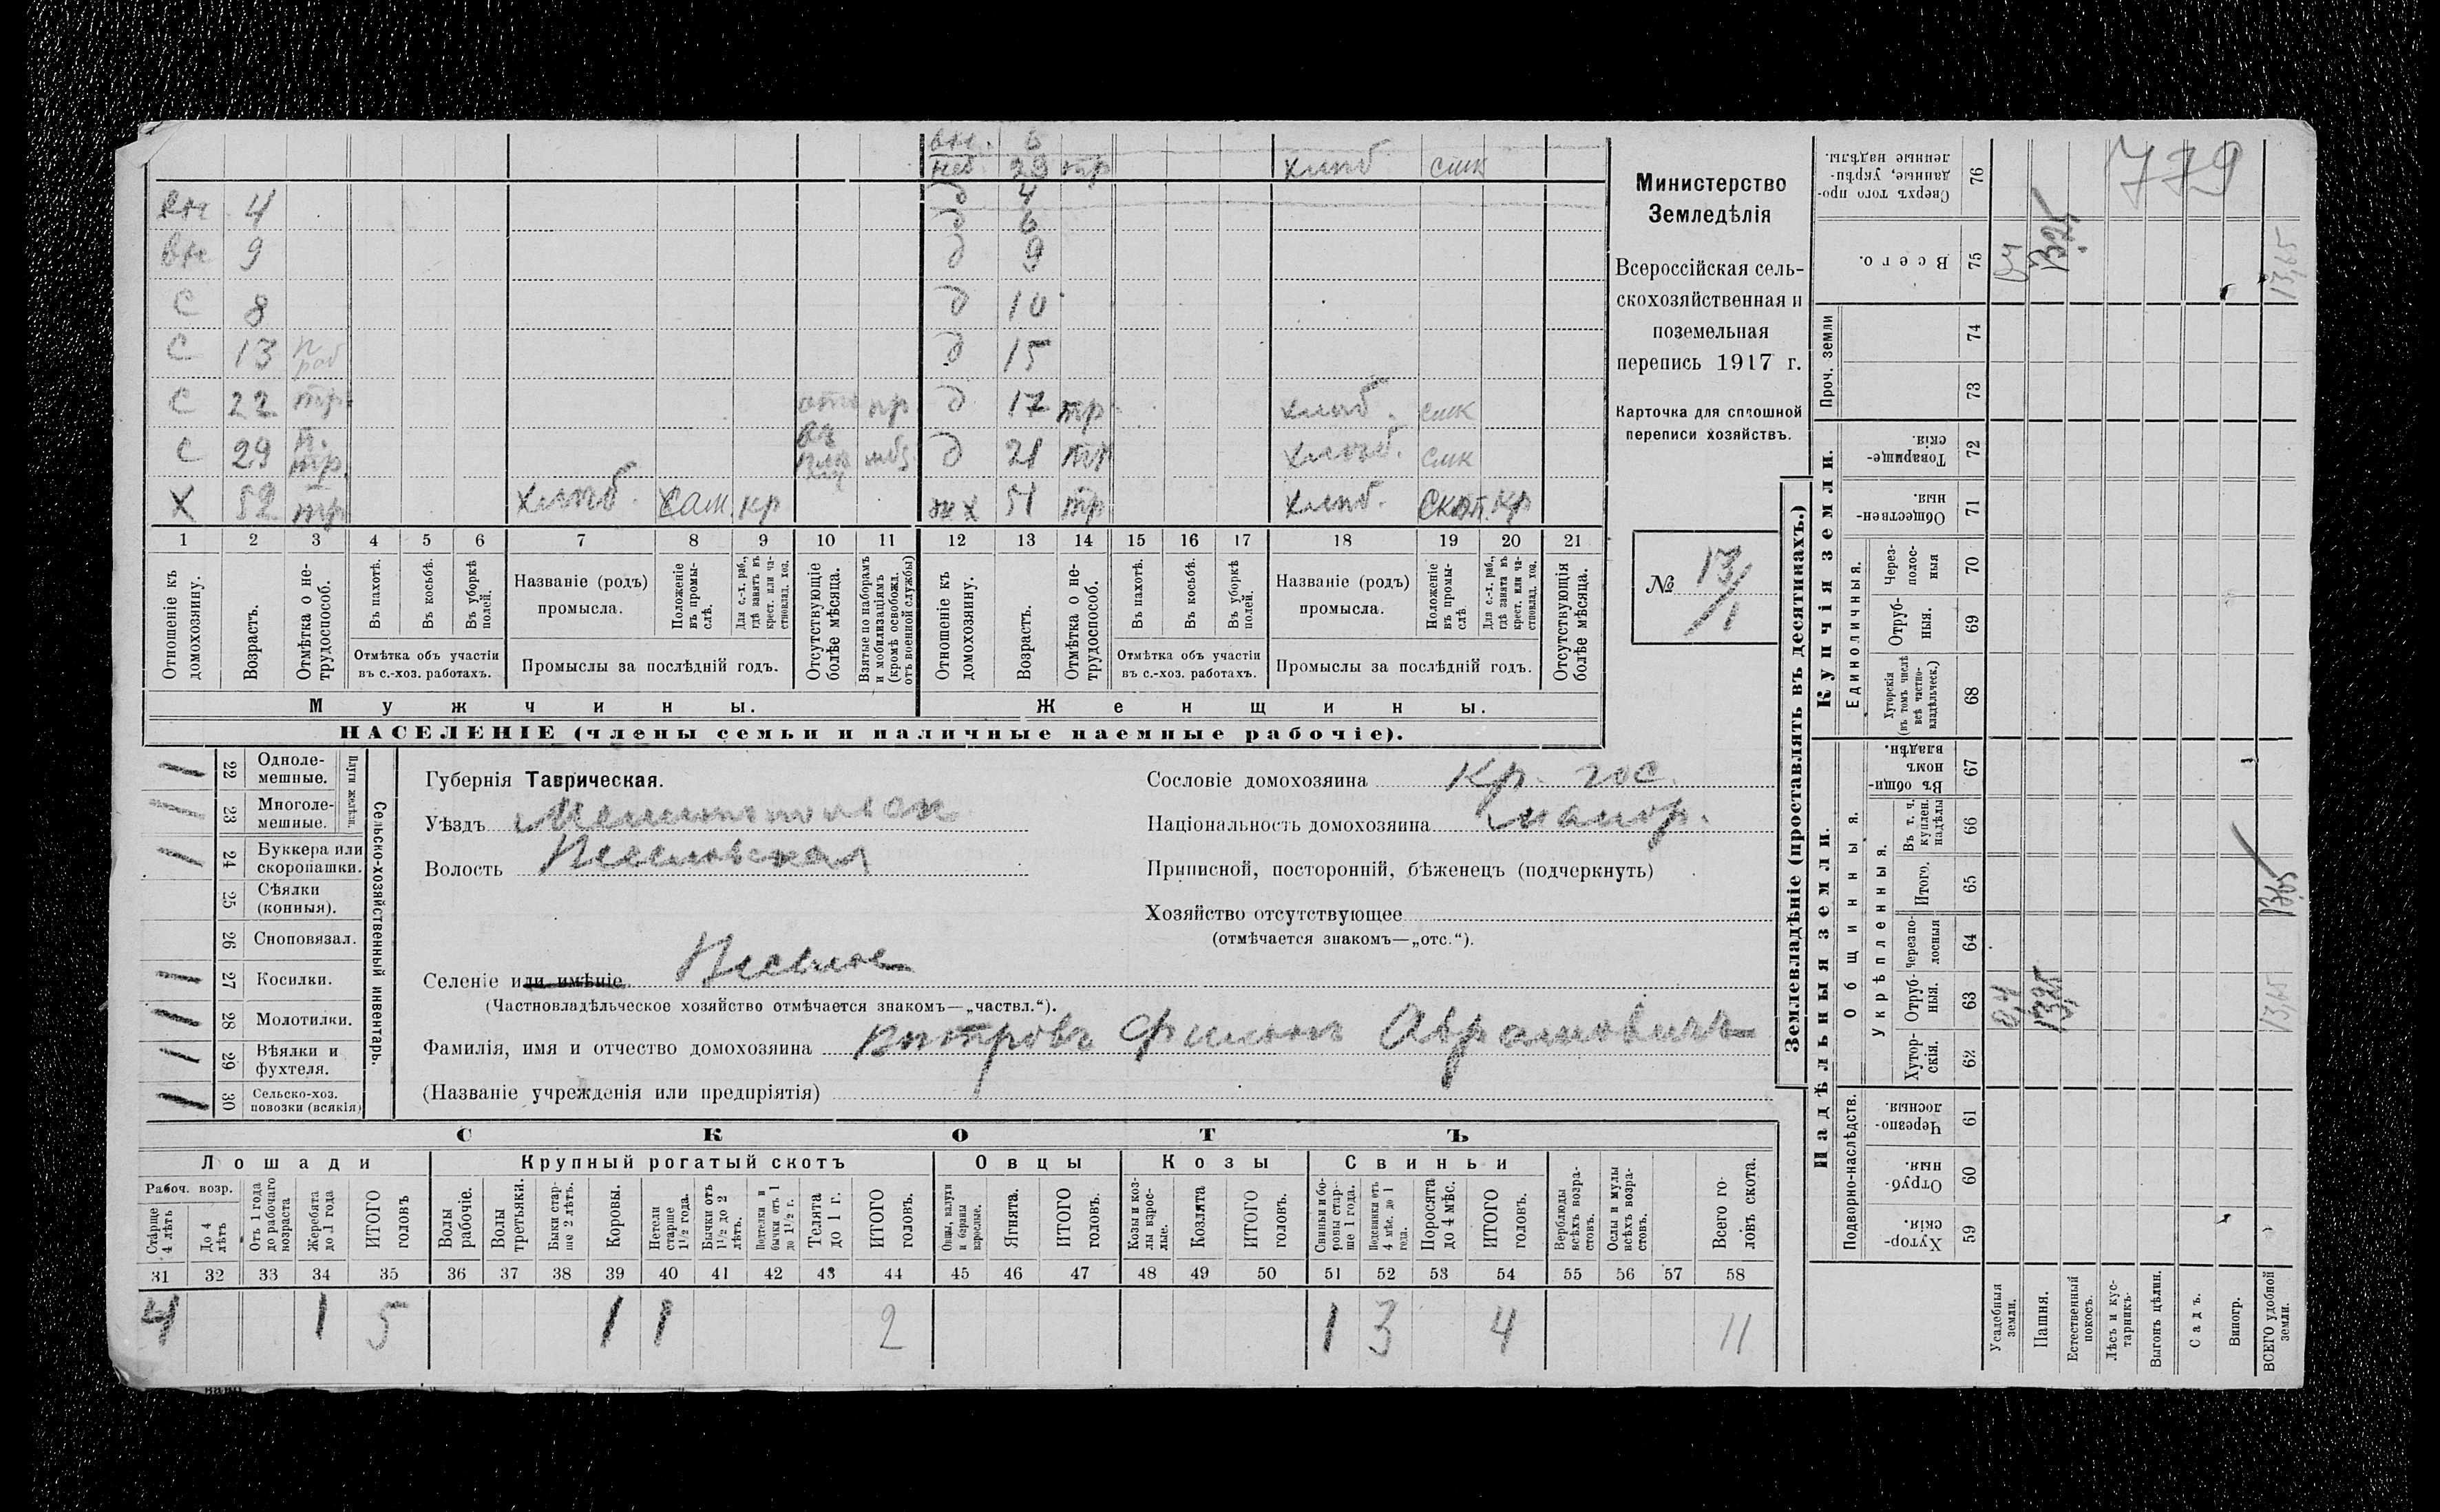 вн. 6
нев. 29 тр хлѣб смк
вн 4 д 4
д 6
вн 9 д 9
С 8 д 10
С 13 п раб д 15
С 22 тр. пр д 17 тр хлѣб. смк
С 29 п. тр. мбз д 21 тр хлѣб. смк
Х 52 тр хлѣб. сам. кр ж х 51 тр хлѣб. кр
1 2 3 4 5 6 7 8 9 10 11 12 13 14 15 16 17 18 19 20 21
Отношеніе къ домохозяину.
Возрастъ.
Отмѣтка о не-трудоспособ.
Въ пахотѣ.
Въ косьбѣ.
Въ уборкѣ полей.
Отмѣтка объ участіи
въ с.-хоз. работахъ.
Названіе (родъ)
промысла.
Положеніе въ промы-слѣ.
Для с.-х. раб., гдѣ занятъ въ крест. или ча-стновлад. хоз.
Промыслы за послѣдній годъ.
Отсутствующіе болѣе мѣсяца.
Взятые по наборамъ и мобилизаціямъ (кромѣ освобожд. отъ военной службы)
Отношеніе къ домохозяину.
Возрастъ.
Отмѣтка о не-трудоспособ.
Въ пахотѣ.
Въ косьбѣ.
Въ уборкѣ полей.
Отмѣтка объ участіи
въ с.-хоз. работахъ.
Названіе (родъ)
промысла.
Положеніе въ промы-слѣ.
Для с.-х. раб., гдѣ занята въ крест. или ча-стновлад. хоз.
Промыслы за послѣдній годъ.
Отсутствующія болѣе мѣсяца.
Мужчины. Женщины.
НАСЕЛЕНІЕ (члены семьи и наличные наемные рабочіе).
Министерство
Земледѣлія
Всероссійская сель-
скохозяйственная и
поземельная
перепись 1917 г.
Карточка для сплошной
переписи хозяйствъ.
№ 13/1
Сельско-хозяйственный инвентарь.
Плуги желѣзн.
1 22 Одноле-мешные.
23 Многоле-мешные.
1 24 Буккера или скоропашки.
25 Сѣялки (конныя).
26 Сноповязал.
1 27 Косилки.
1 28 Молотилки.
1 29 Вѣялки и фухтеля.
1 30 Сельско-хоз. повозки (всякія)
Губернія Таврическая.
Уѣздъ Мелитопольск
Волость Веселовская
Селеніе или имѣніе Веселое
(Частновладѣльческое хозяйство отмѣчается знакомъ—„частвл.“).
Фамилія, имя и отчество домохозяина Вѣтровъ Филиппъ Аврамовичъ
(Названіе учрежденія или предпріятія)
Сословіе домохозяина Кр. гос.
Національность домохозяина малор.
Приписной, посторонній, бѣженецъ (подчеркнуть)
Хозяйство отсутствующее
(отмѣчается знакомъ—„отс.“).
СКОТЪ
Лошади Крупный рогатый скотъ Овцы Козы Свиньи
Рабоч. возр.
Старше 4 лѣтъ
До 4 лѣтъ
Отъ 1 года до рабочаго возраста
Жеребята до 1 года
ИТОГО головъ
Волы рабочіе.
Волы третьяки.
Быки стар-ше 2 лѣтъ.
Коровы.
Нетели старше 1½ года.
Бычки отъ 1½ до 2 лѣтъ.
Подтелки и бычки отъ 1 до 1½ г.
Телята до 1 г.
ИТОГО головъ.
Овцы, валухи и бараны взрослые.
Ягнята.
ИТОГО головъ.
Козы и коз-лы взрос-лые.
Козлята
ИТОГО головъ.
Свиньи и бо-ровы стар-ше 1 года.
Подсвинки отъ 4 мѣс. до 1 года.
Поросята до 4 мѣс.
ИТОГО головъ.
Верблюды всѣхъ возра-стовъ.
Ослы и мулы всѣхъ возра-стовъ.
Всего го-ловъ скота.
31 32 33 34 35 36 37 38 39 40 41 42 43 44 45 46 47 48 49 50 51 52 53 54 55 56 57 58
4 1 5 1 1 2 1 3 4 11
Землевладѣніе (проставлять въ десятинахъ.)
Надѣльныя земли. Купчія земли.
Подворно-наслѣдств.
Общинныя.
Укрѣпленныя.
Единоличныя.
Проч. земли
Сверхъ того про-данные, укрѣп-ленные надѣлы. 76
Всего. 75
74
73
Товарище-скія. 72
Обществен-ныя. 71
Через-полос-ныя 70
Отруб-ныя. 69
Хуторскія (въ томъ числѣ всѣ частно-владѣльческ.) 68
Въ общи-номъ владѣн. 67
Въ т. ч. куплен. надѣлы 66
Итого. 65
Черезпо-лосныя 64
Отруб-ныя. 63
Хутор-скія. 62
Черезпо-лосныя. 61
Отруб-ныя. 60
Хутор-скія. 59
Усадебныя земли. 0,4
Пашня. 13,25 13,25
Естественный покосъ.
Лѣсъ и кус-тарникъ.
Выгонъ цѣлин.
Садъ.
Виногр.
ВСЕГО удобной земли. 13,65 13,65 13,65
779